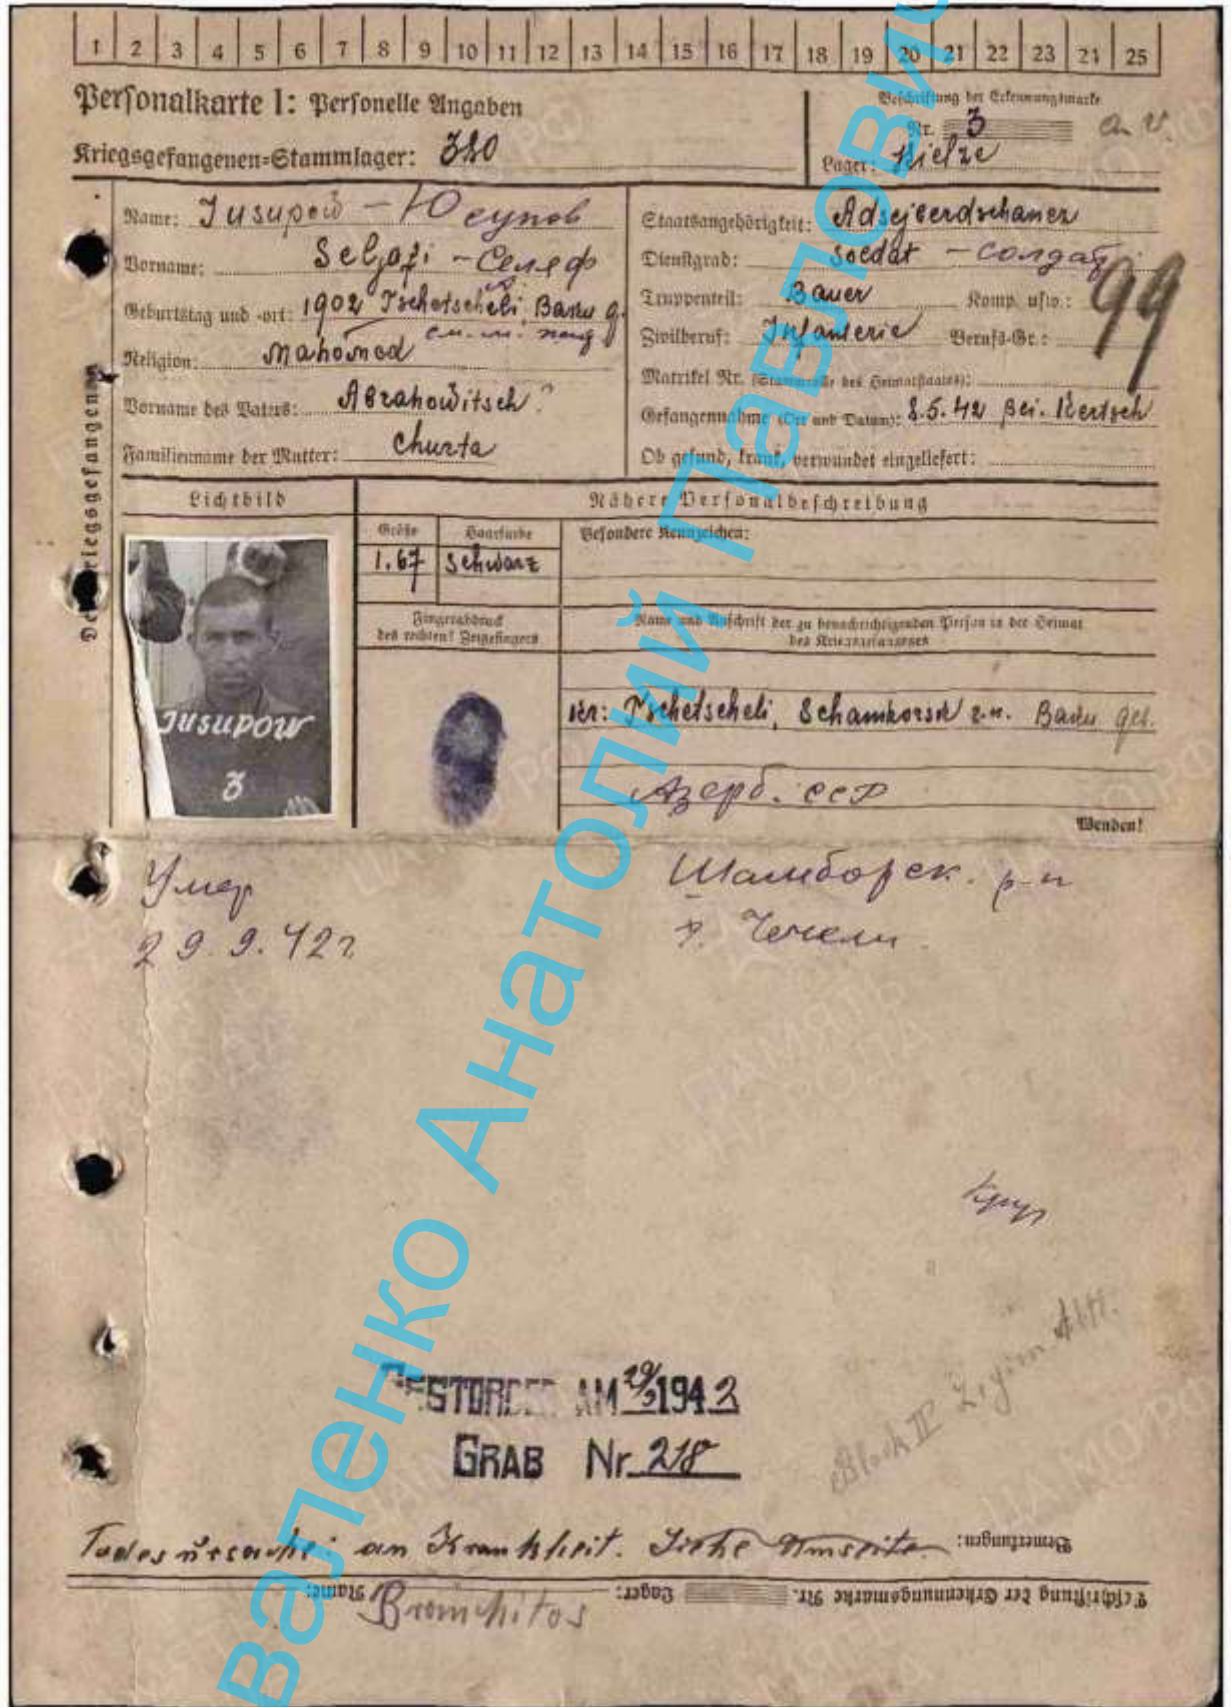 1 2 3 4 5 6 7 8 9 10 11 12 13 14 15 16 17 18 19 20 21 22 23 24 25
Personalkarte I: Personelle Angaben
Beschriftung der Erkennungsmarke
Nr. 3
Kriegsgefangenen=Stammlager: 380
Lager: Kielze
Name: Jusupow – Юсупов
Vorname: Seljafi – Селяф
Geburtstag und -ort: 1902 Tschetscheli, Baku g.
Religion: Mahomed
Vorname des Vaters: Abrahowitsch?
Familienname der Mutter: Churta
Staatsangehörigkeit: Adsejberdschaner
Dienstgrad: Soldat – солдат
Truppenteil: Bauer Komp. usw.:
99
Zivilberuf: Infanterie Berufs-Gr.:
Matrikel Nr. (Stammrolle des Heimatstaates):
Gefangennahme (Ort und Datum): 8.5.42 Bei. Kertsch
Ob gesund, krank, verwundet eingeliefert:
Des Kriegsgefangenen
Lichtbild
Nähere Personalbeschreibung
Größe Haarfarbe Besondere Kennzeichen:
1.67 Schwarz
Fingerabdruck
des rechten! Zeigefingers
Name und Anschrift der zu benachrichtigenden Person in der Heimat
des Kriegsgefangenen
Jusupow
3
Tschetscheli, Schamkorsk r-n. Baku geb.
Азерб. ССР
Wenden!
Умер
29.9.42г
Шамборск. р-н
Чечели
GESTORBEN AM 29/9 1942
GRAB Nr. 218
Block II Legion Abt.
Todesursache: an Krankheit. Siehe Umseite.
Bemerkungen:
Beschriftung der Erkennungsmarke Nr. Lager: Name:
Bronchitos
Валенко Анатолий Павлович